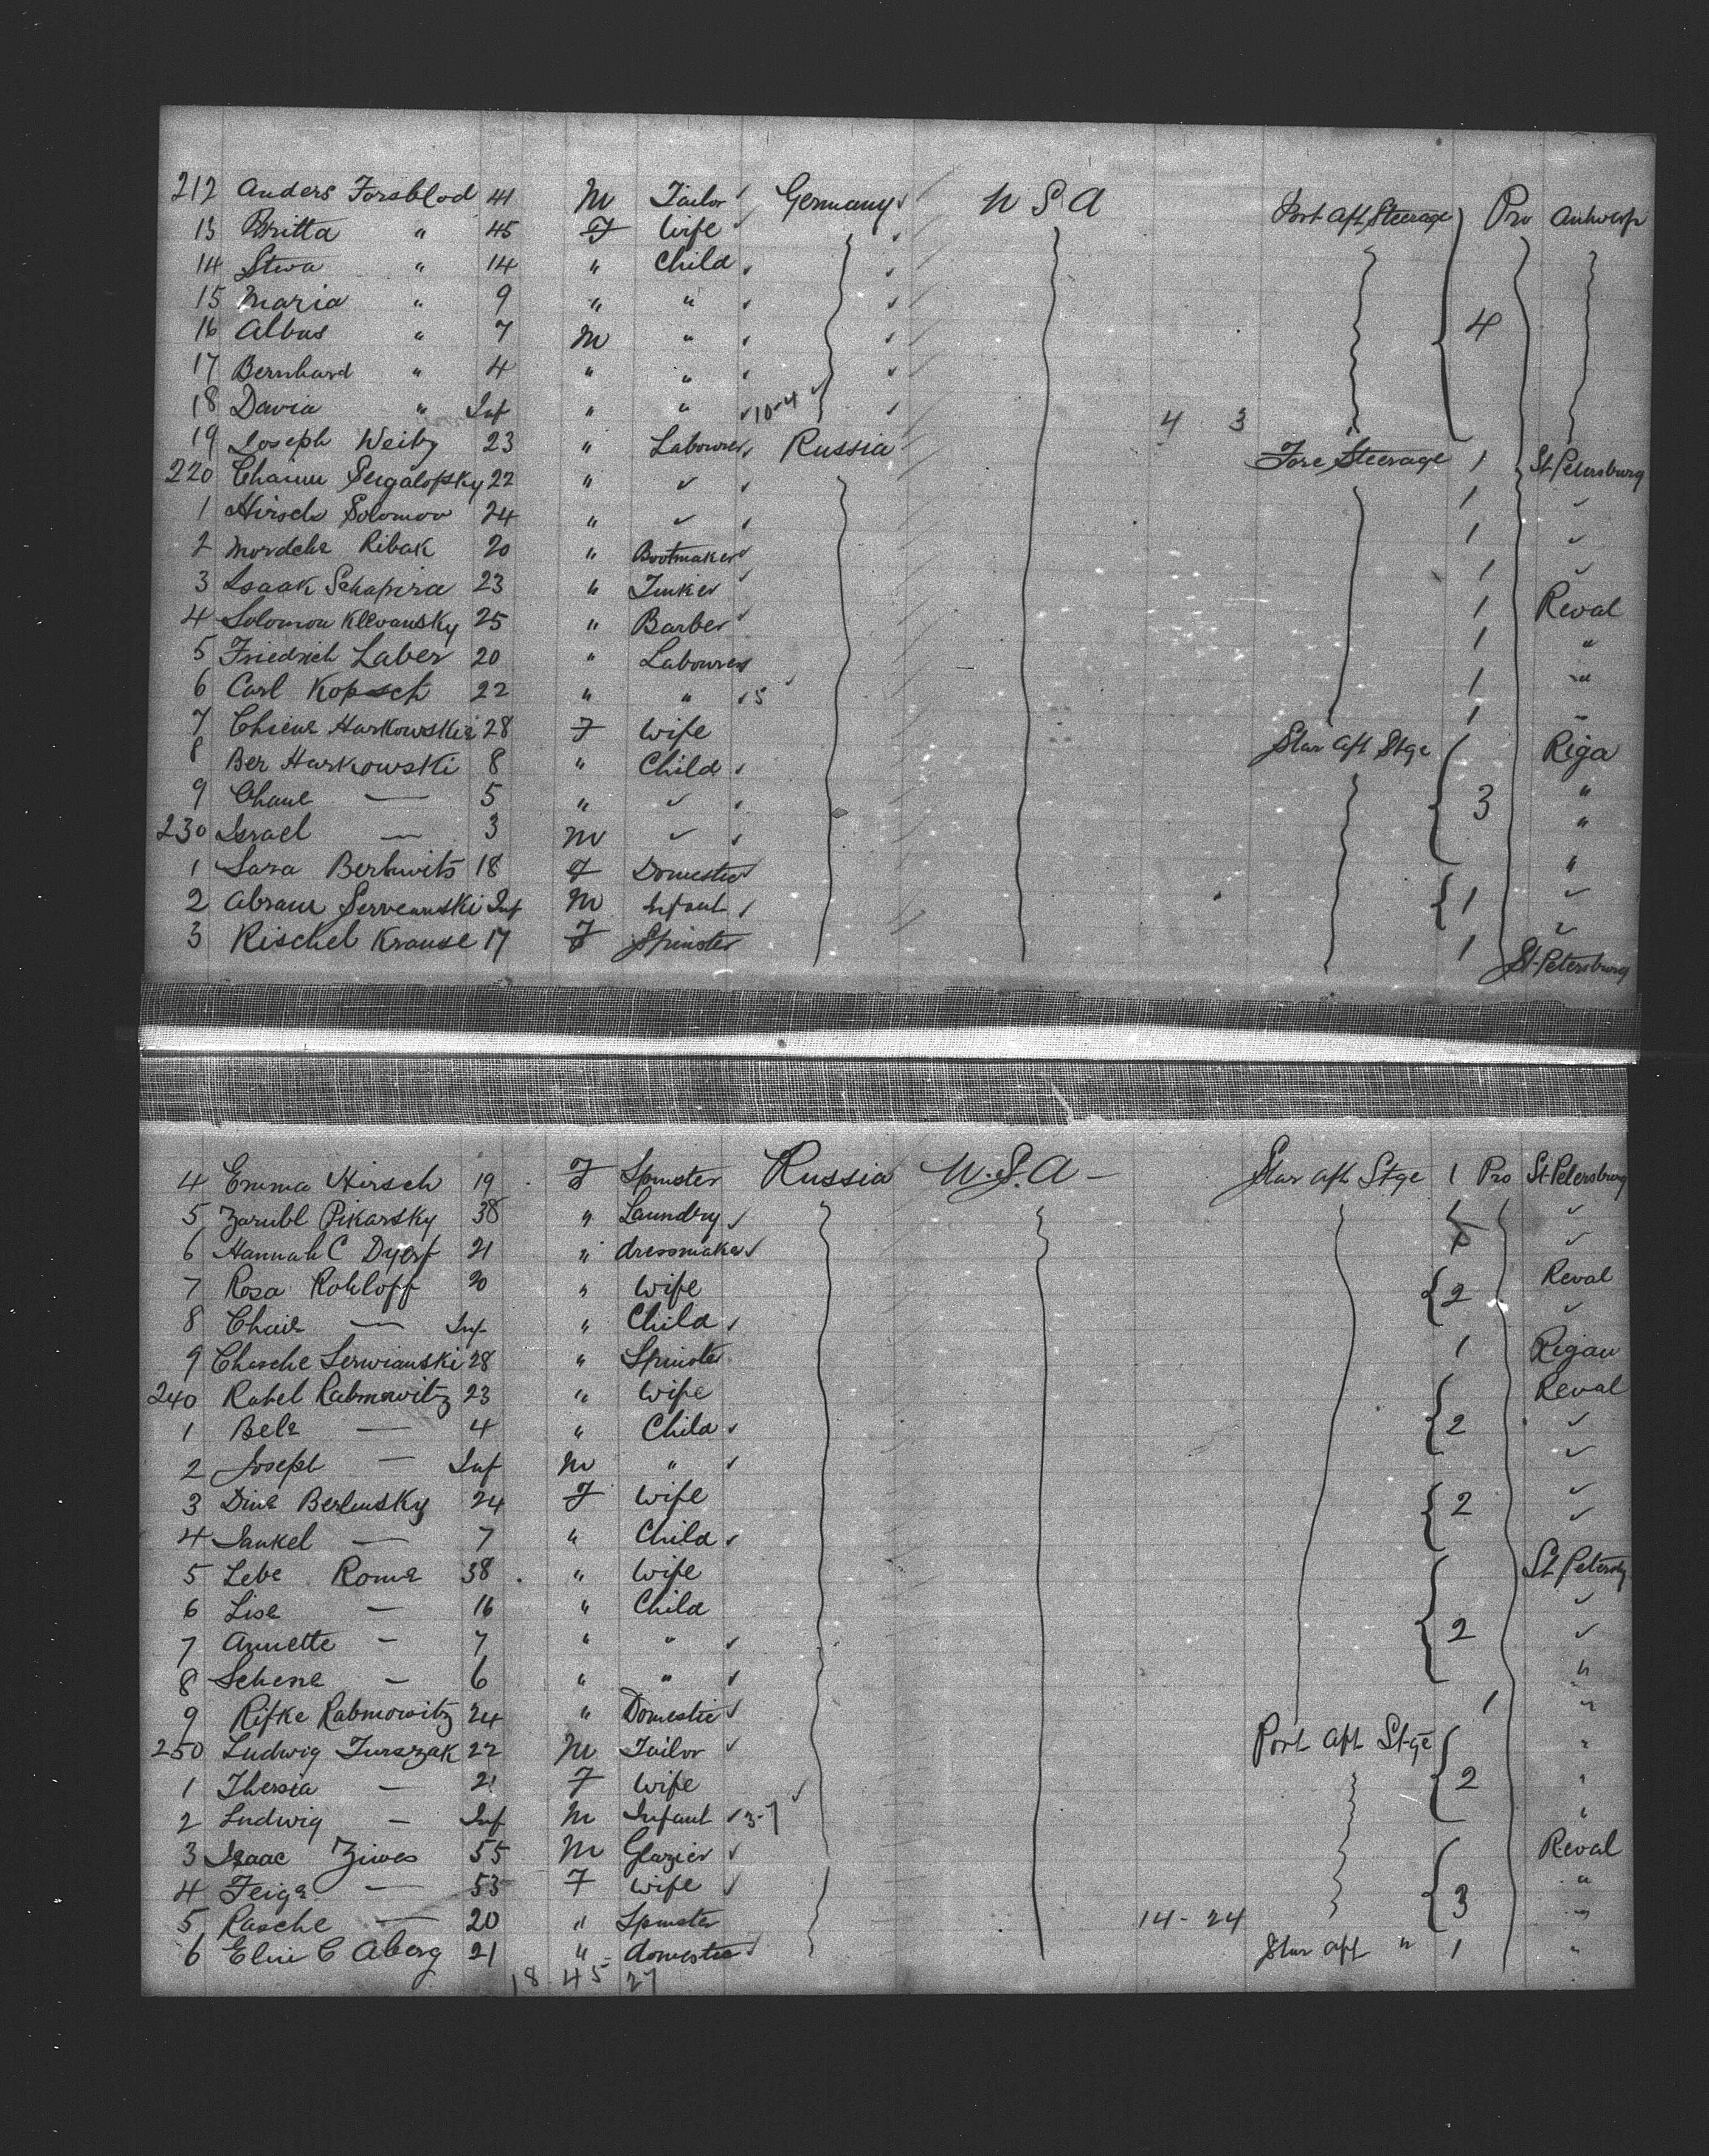 212 Anders Forsblod 41 M Tailor Germany U S A Port Aft Steerage Pro Antwerp
13 Britta " 45 F Wife
14 Stwa " 14 " Child
15 Maria " 9 " "
16 Albus " 7 M " 4
17 Bernhard " 4 " "
18 Davia " Inf " " 10-4 4 3
19 Joseph Weitz 23 " Labourer Russia Fore Steerage 1 St Petersburg
220 Chaim Segalopsky 22 " ✓ 1 ✓
1 Hirsch Solomon 24 " ✓ 1 ✓
2 Mordche Ribak 20 " Bootmaker 1 ✓
3 Isaak Schapira 23 " Tinker 1 Reval
4 Solomon Klevansky 25 " Barber 1 "
5 Friedrich Laber 20 " Labourer 1 "
6 Carl Kopsch 22 " " 15 1 "
7 Chiene Harkowskie 28 F Wife Star Aft Stge Riga
8 Ber Harkowski 8 " Child "
9 Chane — 5 " ✓ 3 "
230 Israel — 3 M ✓ "
1 Sara Berkwits 18 F Domestic ✓
2 Abram Serveanski Inf M Infant 1 ✓
3 Rischel Krause 17 F Spinster 1 St Petersburg
4 Emma Hirsch 19 F Spinster Russia U.S.A — Star Aft Stge 1 Pro St Petersburg
5 Pikarsky 38 " Laundry 1 ✓
6 Hannah C 21 " dressmaker ✓
7 Rosa Rohloff 20 " Wife 2 Reval
8 Chaie — Inf " Child ✓
9 Chasche Serwianski 28 " Spinster 1 Rigau
240 Rahel Rabinowitz 23 " Wife Reval
1 Bele — 4 " Child 2 ✓
2 Joseph — Inf M " ✓
3 Dine Berlinsky 24 F Wife 2 ✓
4 Jankel — 7 " Child ✓
5 Lebe Rome 38 " Wife St Petersbg
6 Lise — 16 " Child ✓
7 Annette — 7 " " 2 ✓
8 Schene — 6 " " "
9 Rifke Rabinowitz 24 " Domestic 1 "
250 Ludwig Turszak 22 M Tailor Port Aft Stge "
1 Thersia — 21 F Wife 2 "
2 Ludwig — Inf M Infant 3-7 "
3 Isaac Ziwes 55 M Glazier Reval
4 Feige — 53 F Wife "
5 Rasche — 20 " Spinster 14 - 24 3 "
6 Elin C Aberg 21 " domestic Star Aft " 1 "
18 - 45 27